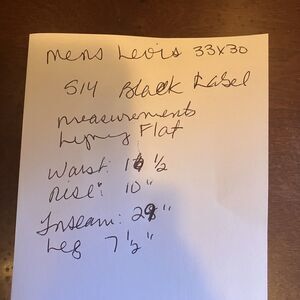 Mens Levis 33x30
514 Black Label
measurements
Lying Flat
Waist: 16 1/2
Rise: 10"
Inseam: 29"
Leg 7 1/2"